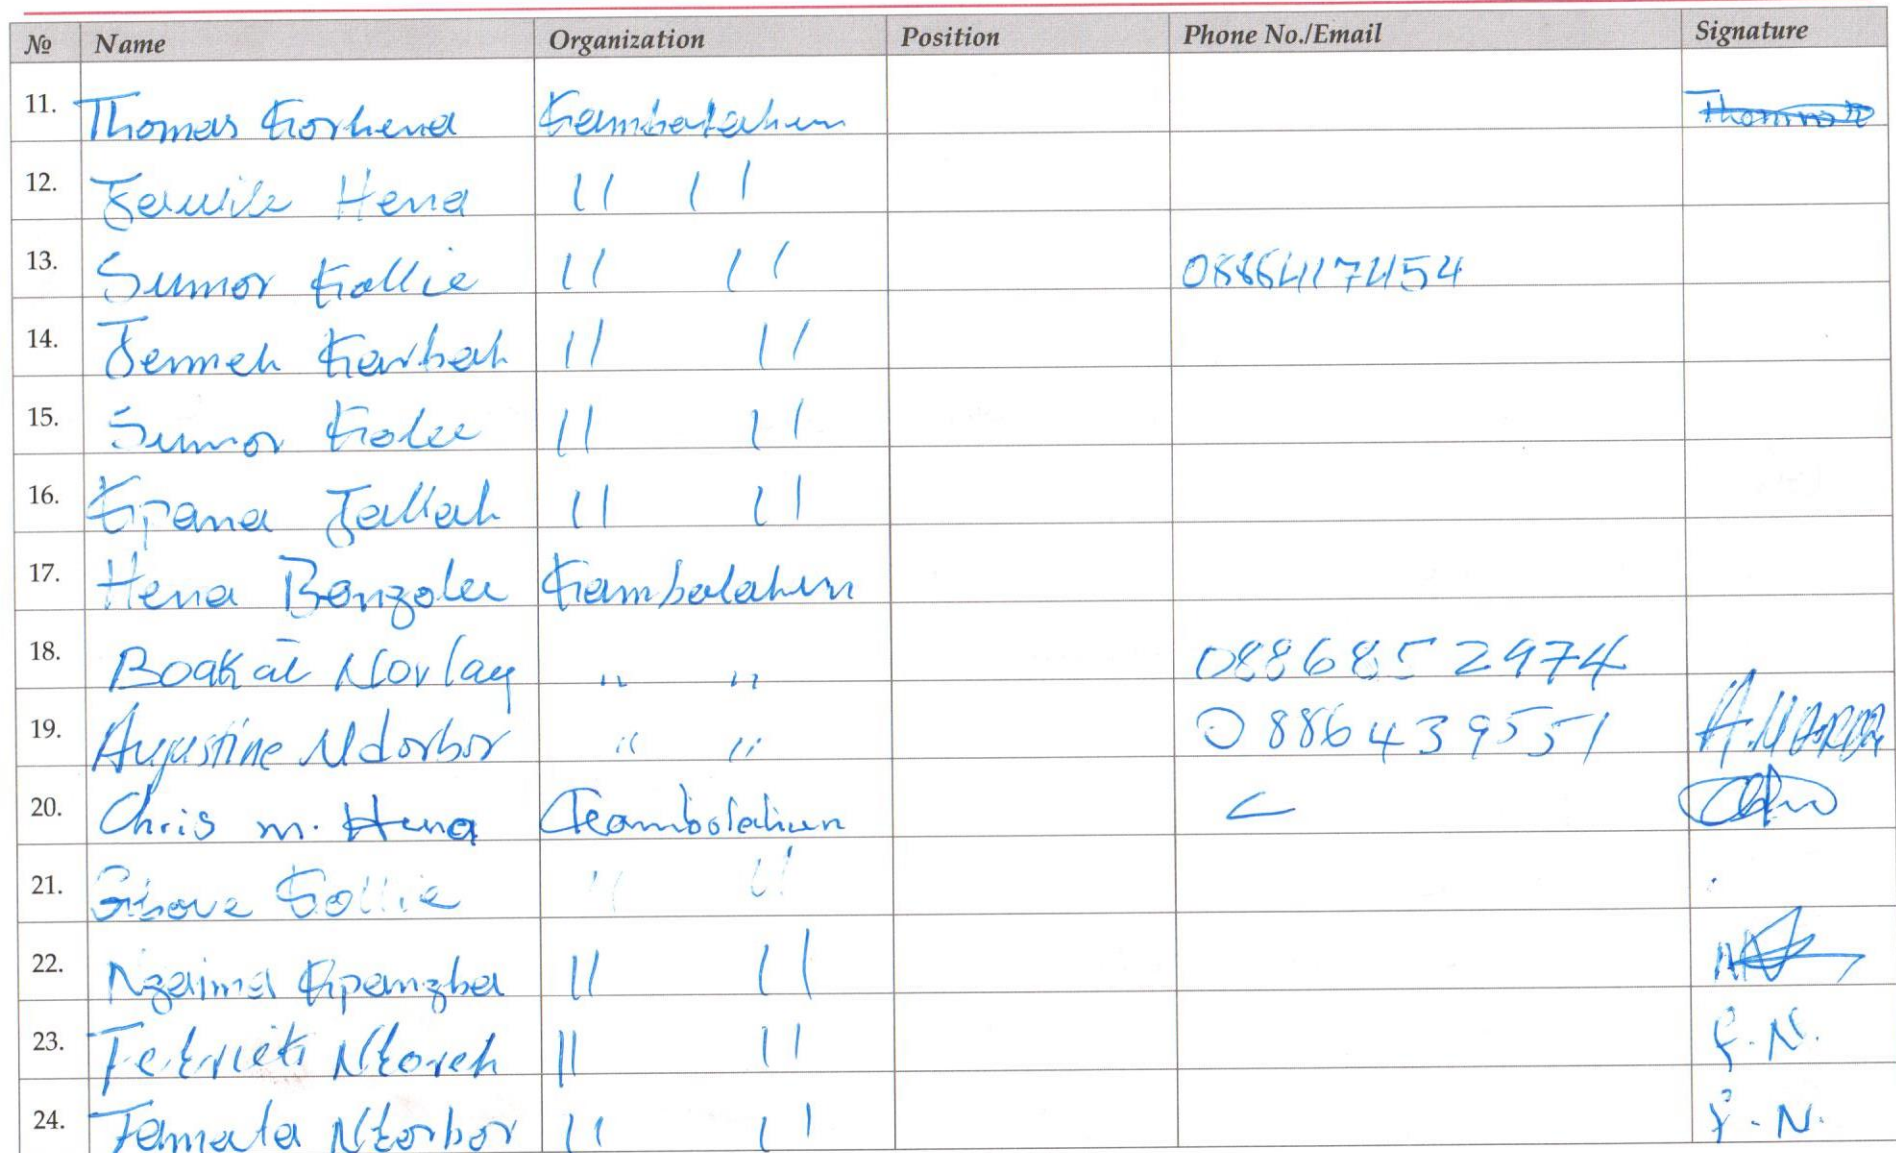 № Name Organization Position Phone No./Email Signature
11. Thomas Korhena Kambatahun Thomas
12. Hena 11 11
13. Sumor Kollie 11 11 08864117454
14. Jenneh Karbah 11 11
15. Sumor Kolee 11 11
16. Kpana Jallah 11 11
17. Hena Bongolee Kambolahun
18. Boakai Norlay " " 0886852974
19. Augustine Ndorbor " " 0886439551
20. Chris M. Hena Kambolahun
21. Kollie 11 11
22. Ngaima Kpangba 11 11
23. 11 11 F.N.
24. Famata Ndorbor 11 11 F.N.